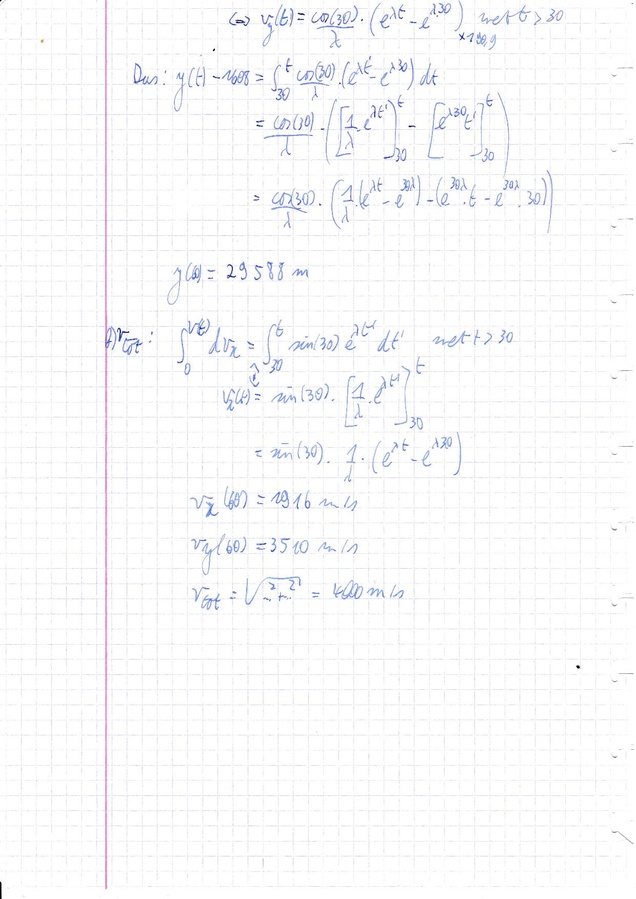 ⇔ v_y(t) = cos(30)/λ · (e^{λt} - e^{λ30}) met t > 30
Dus: y(t) - 1608 = ∫_{30}^{t} cos(30)/λ · (e^{λt'} - e^{λ30}) dt
= cos(30)/λ · ([1/λ e^{λt'}]_{30}^{t} - [e^{λ30} t']_{30}^{t})
= cos(30)/λ · (1/λ (e^{λt} - e^{30λ}) - (e^{30λ} · t - e^{30λ} · 30))
y(60) = 29588 m
v_tot : ∫_0^{v(t)} dv_x = ∫_{30}^{t} sin(30) e^{λt'} dt' met t > 30
v_x(t) = sin(30) · [1/λ · e^{λt'}]_{30}^{t}
= sin(30) · 1/λ · (e^{λt} - e^{λ30})
v_x(60) = 1916 m/s
v_y(60) = 3510 m/s
v_tot = √(…² + …²) = 4000 m/s